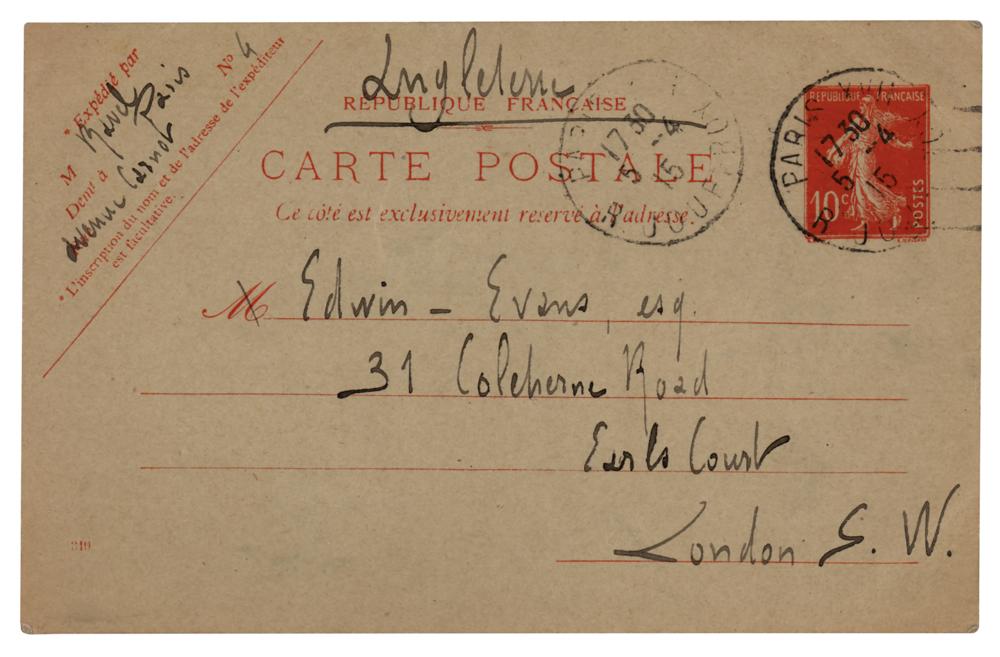 * Expédié par
M Ravel
Demt à Paris
avenue Carnot
N° 4
* L'inscription du nom et de l'adresse de l'expéditeur
est facultative.
Angleterre
RÉPUBLIQUE FRANÇAISE
CARTE POSTALE
Ce côté est exclusivement réservé à l'adresse.
PARIS
17 30
5 -4
15
R. JOUFFROY
REPUBLIQUE FRANÇAISE
10 c
POSTES
PARIS XVII
17 30
5 -4
15
M Edwin - Evans, esq.
31 Colcherne Road
Earls Court
London S. W.
319